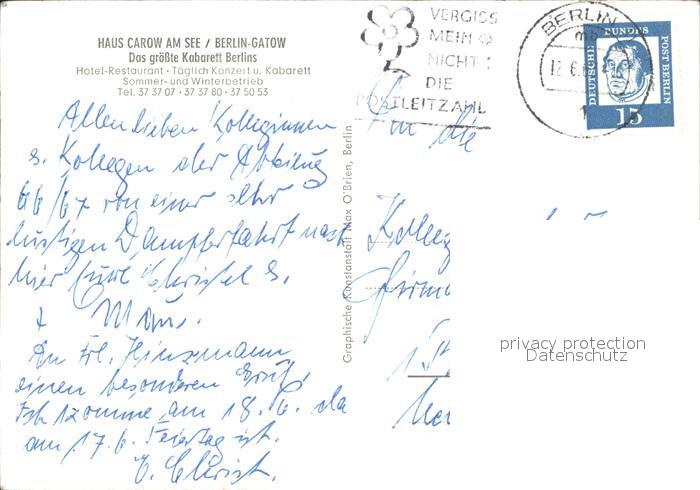 HAUS CAROW AM SEE / BERLIN-GATOW
Das größte Kabarett Berlins
Hotel-Restaurant · Täglich Konzert u. Kabarett
Sommer- und Winterbetrieb
Tel. 37 37 07 · 37 37 80 · 37 50 53
Allen lieben Kolleginnen
u. Kollegen der Abteilung
66/67 von einer sehr
lustigen Dampferfahrt nach
hier Eure Christel
+
An Frl. Hinzmann
einen besonderen Gruß,
Ich komme am 18.6. da
am 17.6. Feiertag ist.
Christ.
Graphische Kunstanstalt Max O'Brien, Berlin
VERGISS
MEIN
NICHT:
DIE
POSTLEITZAHL
BERLIN
12.6.6
1
DEUTSCHE BUNDES POST BERLIN
15
An die
Firma
privacy protection
Datenschutz